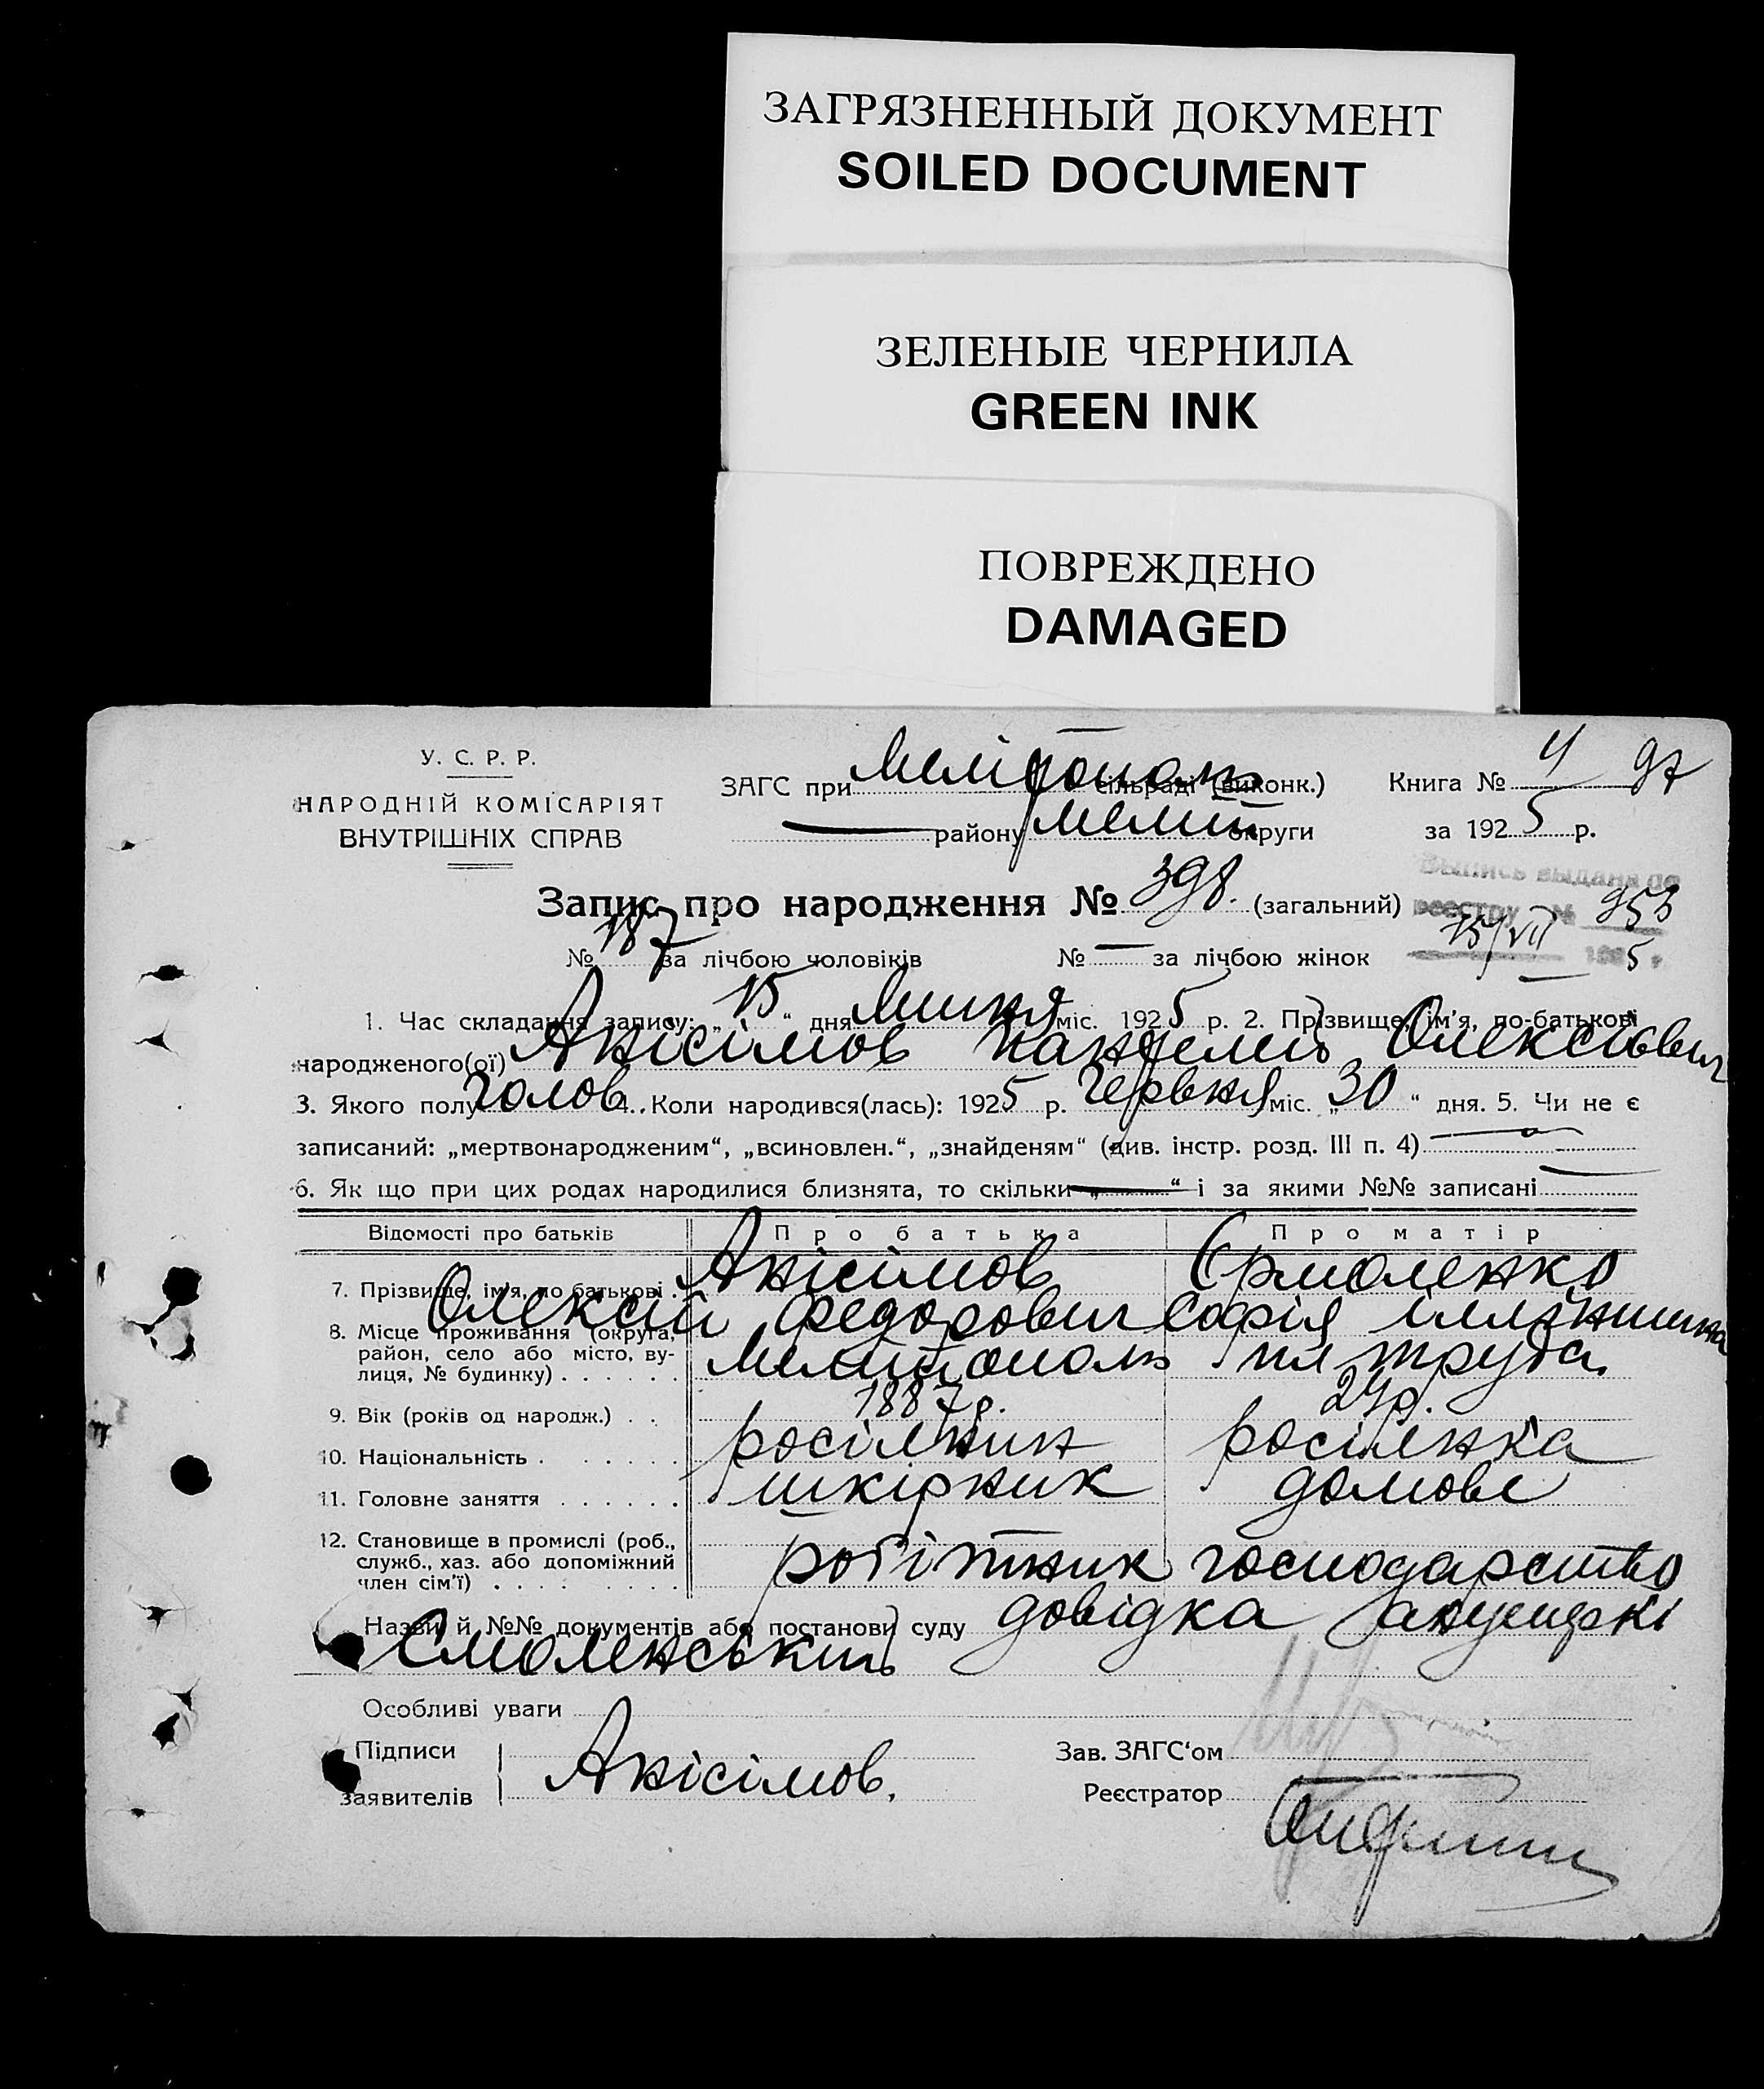 ЗАГРЯЗНЕННЫЙ ДОКУМЕНТ
SOILED DOCUMENT
ЗЕЛЕНЫЕ ЧЕРНИЛА
GREEN INK
ПОВРЕЖДЕНО
DAMAGED
У. С. Р. Р.
НАРОДНІЙ КОМІСАРІЯТ
ВНУТРІШНІХ СПРАВ
ЗАГС при Мелітополь сільраді (виконк.) Книга № 4 97
— району Меліт округи за 1925 р.
Запис про народження № 398. (загальний)
Выпись выдана по
реестру № 953
15/VII 1925 г.
№ 187 за лічбою чоловіків № — за лічбою жінок
1. Час складання запису: „15“ дня Липня міс. 1925 р. 2. Прізвище, ім'я, по-батькові
народженого(ої) Анісімов Пантелій Олексієвич
3. Якого полу чолов. 4. Коли народився(лась): 1925 р. Червня міс. „30“ дня. 5. Чи не є
записаний: „мертвонародженим“, „всиновлен.“, „знайденям“ (див. інстр. розд. III п. 4) —
6. Як що при цих родах народилися близнята, то скільки „—“ і за якими №№ записані —
Відомості про батьків Про батька Про матір
7. Прізвище, ім'я, по батькові . Анісімов Єрмоленко
Олексій Федорович Софія
8. Місце проживання (округа,
район, село або місто, ву-
лиця, № будинку) . . . . . . Мелітополь труда
9. Вік (років од народж.) . . 1887 р. 24 р.
10. Національність . . . . . . росіянин росіянка
11. Головне заняття . . . . . . шкірник домове
12. Становище в промислі (роб.,
служб., хаз. або допоміжний
член сім'ї) . . . . . . . . робітник господарство
Назви й №№ документів або постанови суду довідка акушерки
Смоленський
Особливі уваги
Підписи
заявителів Анісімов.
Зав. ЗАГС‘ом
Реєстратор